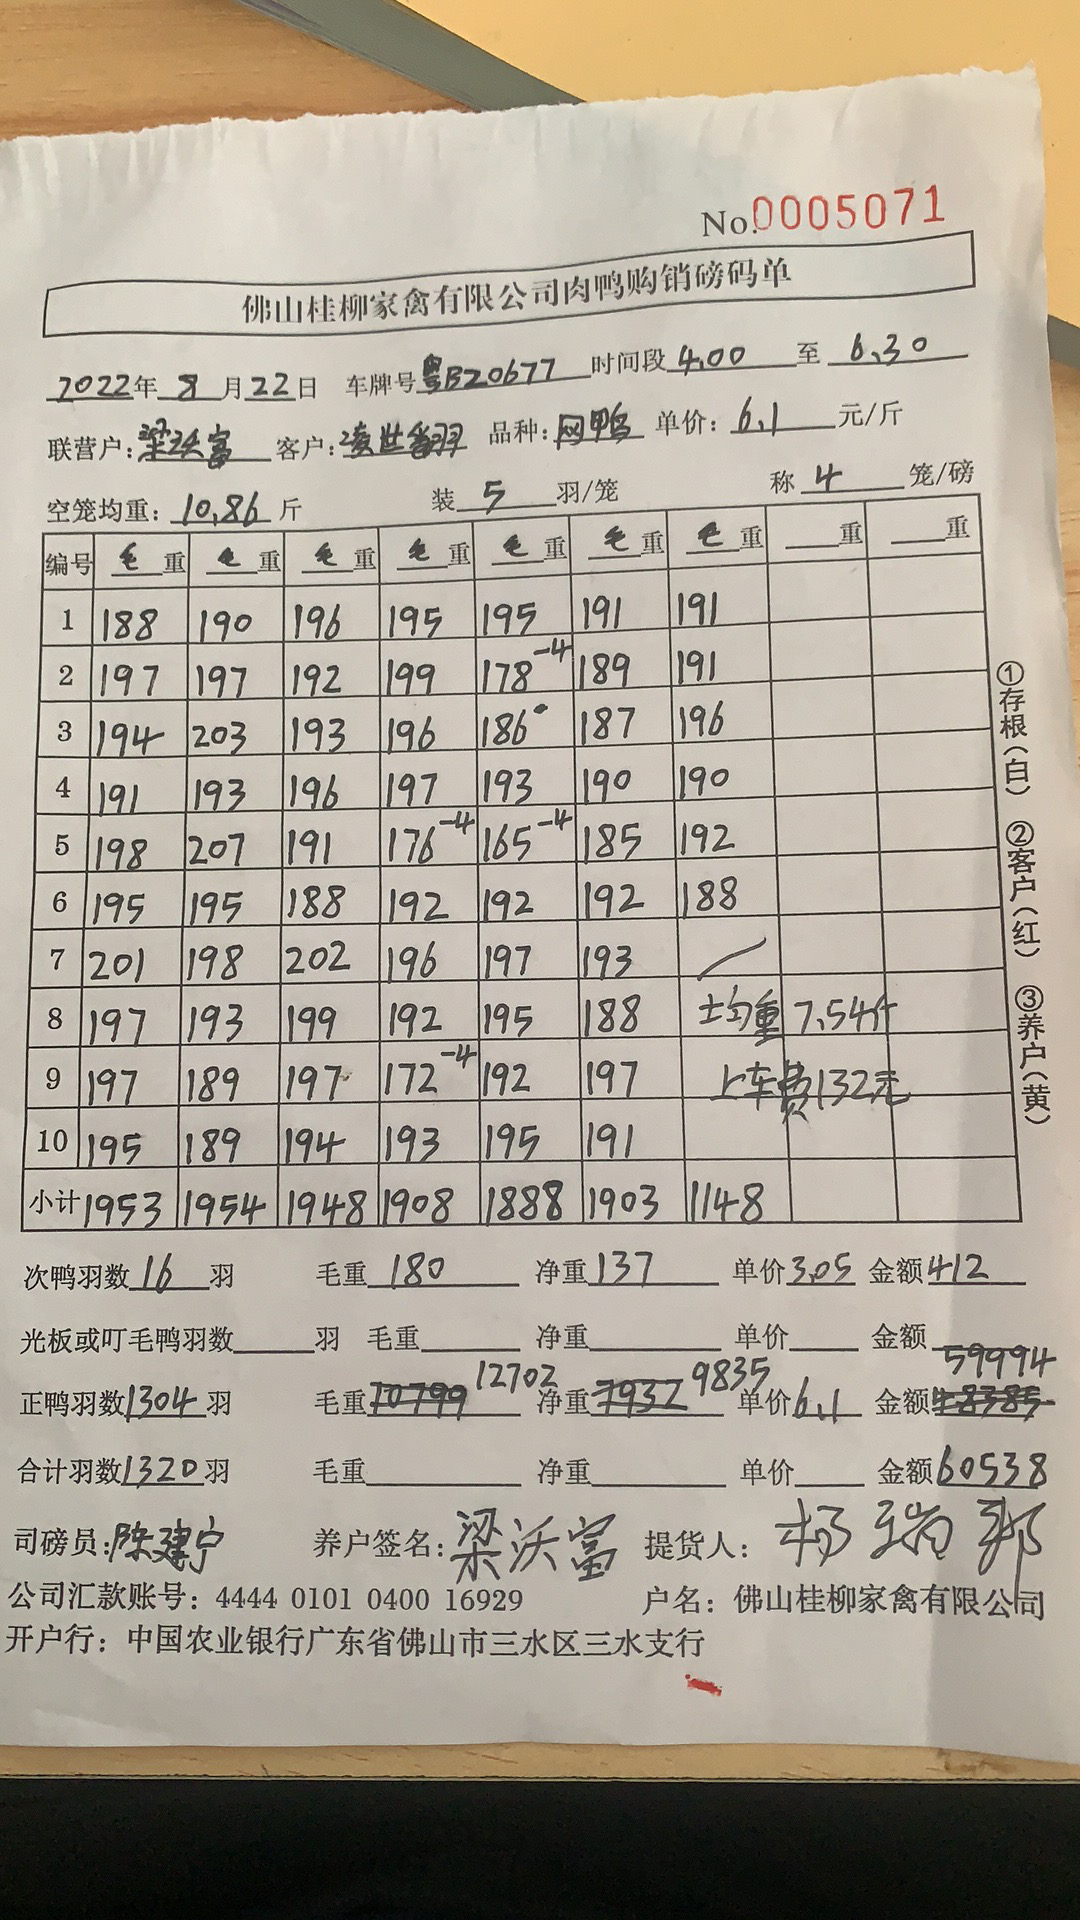 No.0005071
佛山桂柳家禽有限公司肉鸭购销磅码单
2022年 8月22日 车牌号粤B20677 时间段4.00 至 6.30
联营户:梁沃富 客户:凌世翻 品种:网鸭 单价:6.1 元/斤
空笼均重:10.86斤 装 5 羽/笼 称 4 笼/磅
编号 毛重 毛重 毛重 毛重 毛重 毛重 毛重 重 重
1 188 190 196 195 195 191 191
2 197 197 192 199 178-4 189 191
3 194 203 193 196 186 187 196
4 191 193 196 197 193 190 190
5 198 207 191 176-4 165-4 185 192
6 195 195 188 192 192 192 188
7 201 198 202 196 197 193
8 197 193 199 192 195 188 均重 7.54斤
9 197 189 197 172-4 192 197 上车费132元
10 195 189 194 193 195 191
小计 1953 1954 1948 1908 1888 1903 1148
次鸭羽数16羽 毛重180 净重137 单价3.05 金额412
光板或叮毛鸭羽数 羽 毛重 净重 单价 金额
正鸭羽数1304羽 毛重10799 12702 净重7932 9835 单价6.1 金额48385 59994
合计羽数1320羽 毛重 净重 单价 金额60538
司磅员:陈建宁 养户签名:梁沃富 提货人:杨瑞邦
公司汇款账号:4444 0101 0400 16929 户名:佛山桂柳家禽有限公司
开户行:中国农业银行广东省佛山市三水区三水支行
①存根(白) ②客户(红) ③养户(黄)